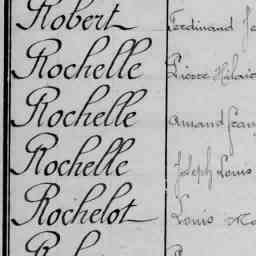 Robert Ferdinand
Rochelle Pierre Hilaire
Rochelle Amand
Rochelle Joseph Louis
Rochelot Louis